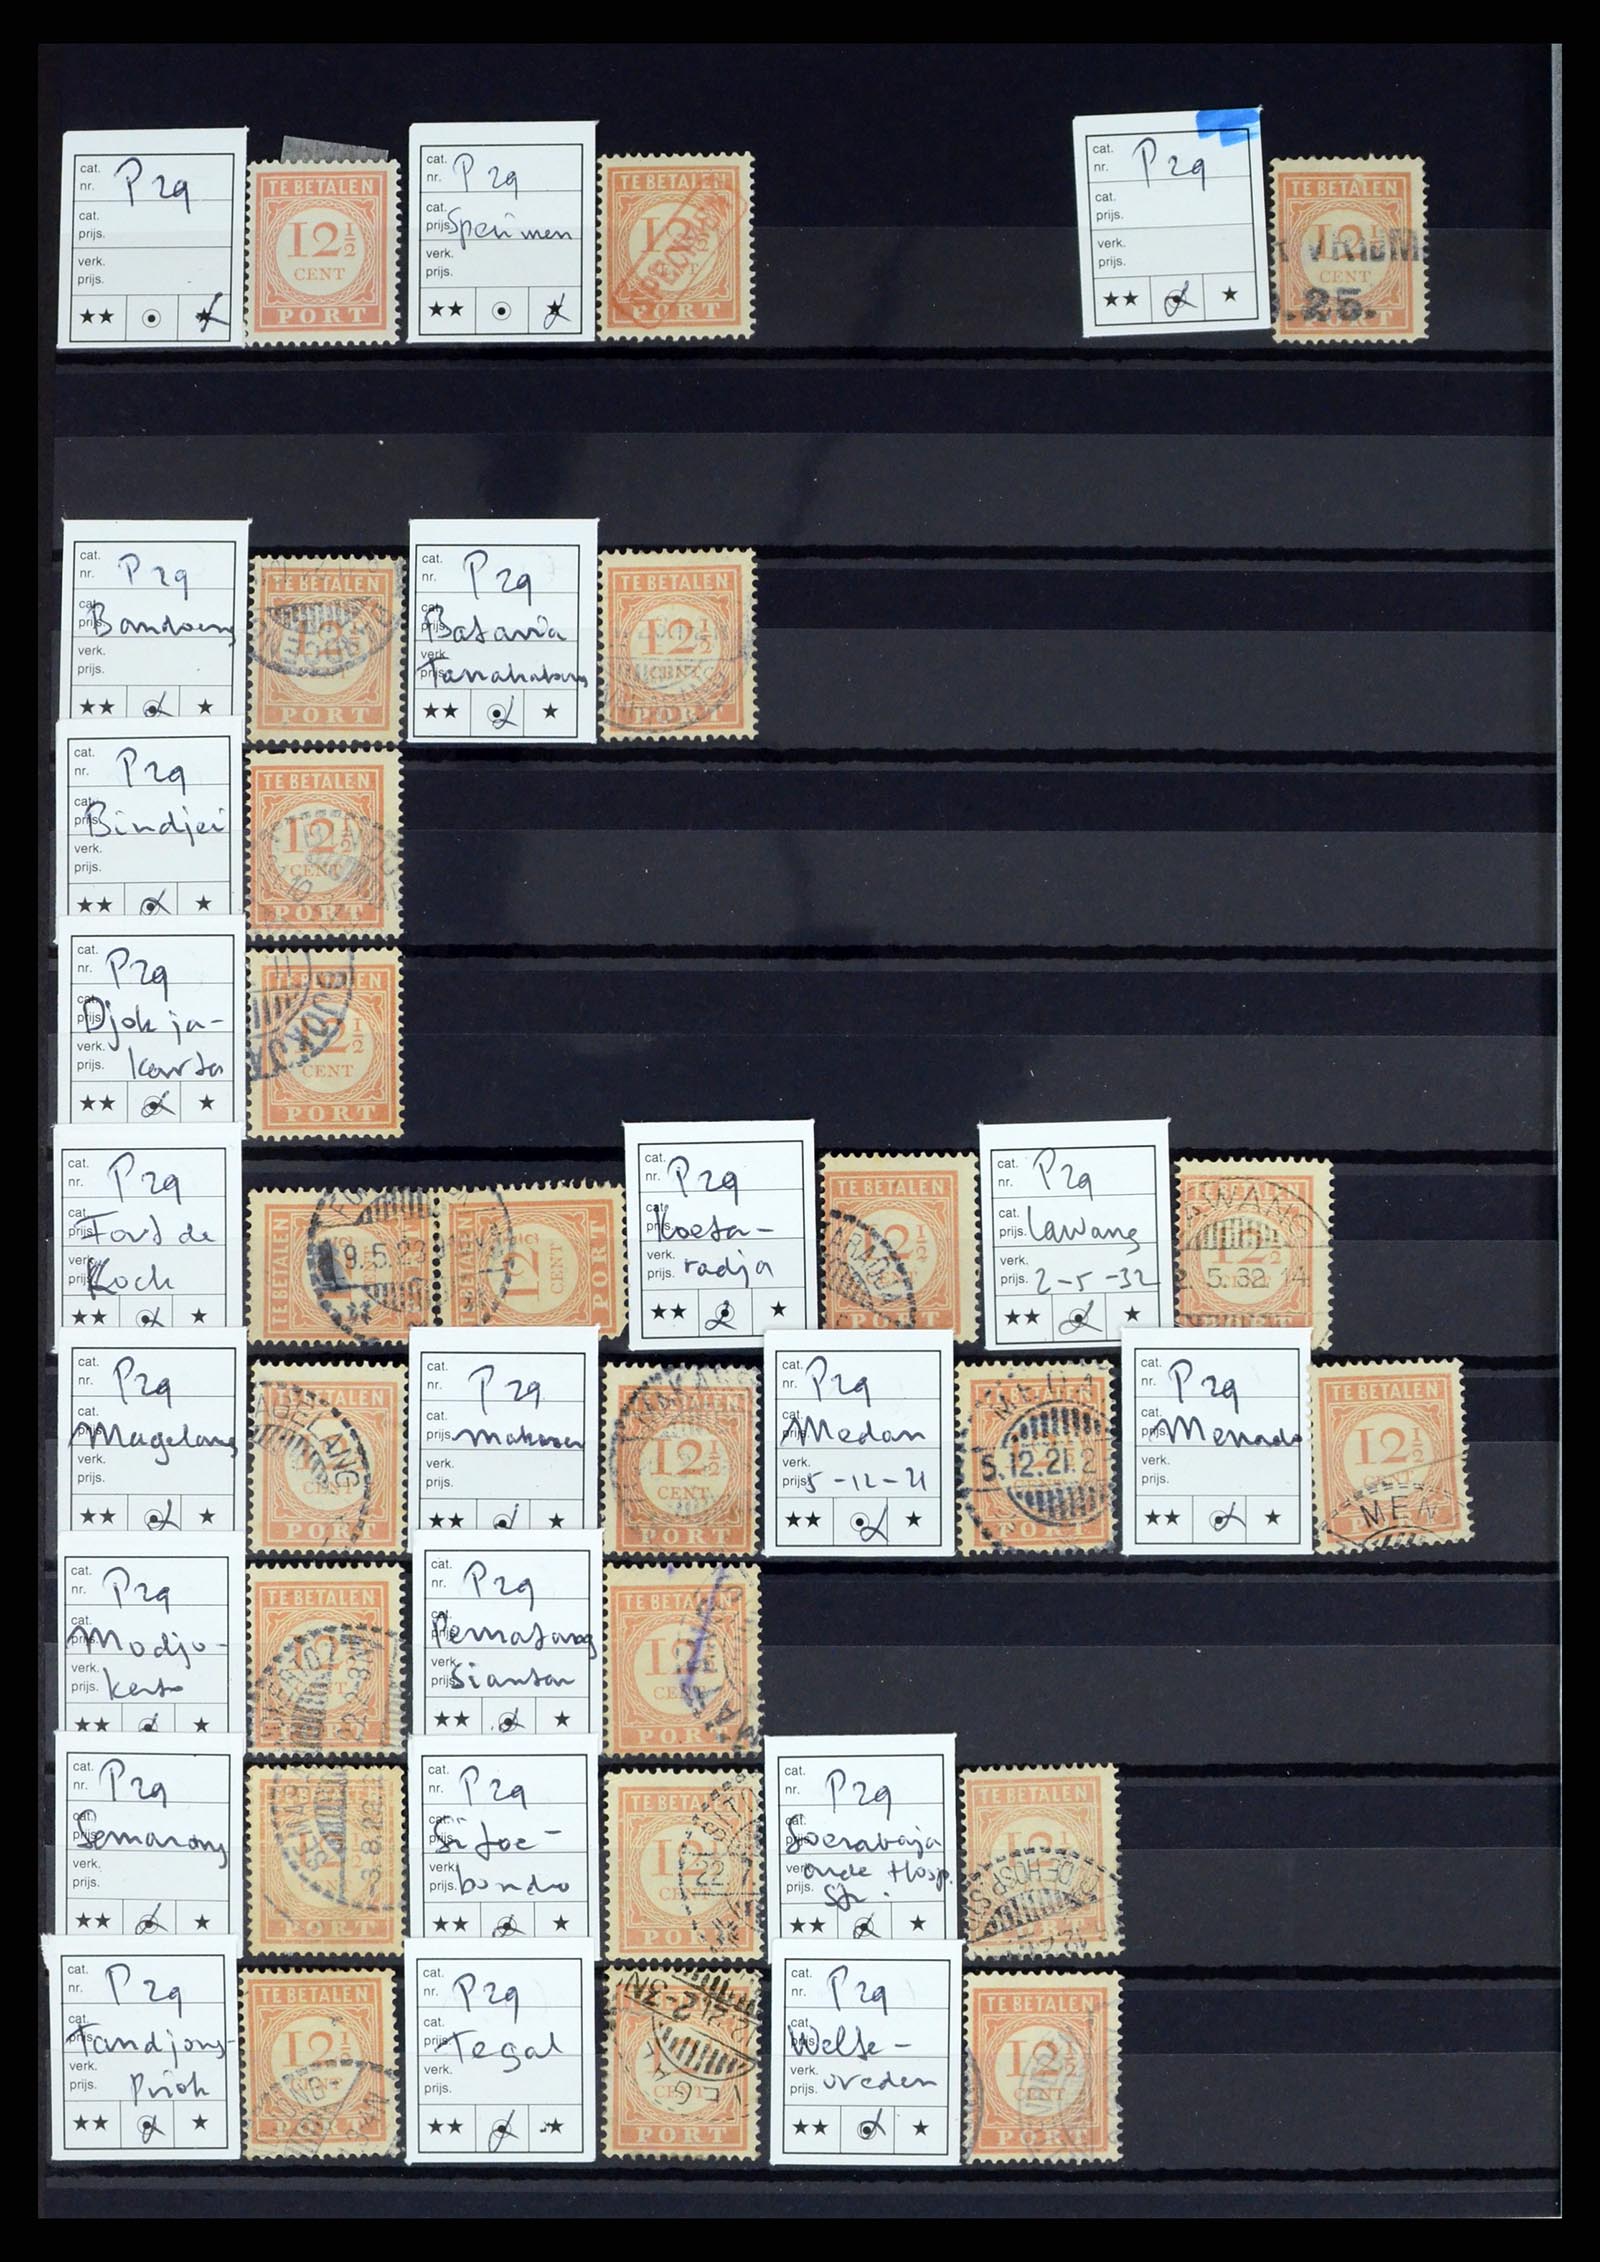 cat.
nr. P 29
cat.
prijs.
verk.
prijs.
★★ ★
TE BETALEN
12½
CENT
PORT
cat.
nr. P 29
cat.
prijs. Specimen
verk.
prijs.
★★ ★
TE BETALEN
12½
SPECIMEN
PORT
cat.
nr. P 29
cat.
prijs.
verk.
prijs.
★★ ★
TE BETALEN
12½
CENT
.25.
PORT
cat.
nr. P 29
cat.
prijs. Bandoeng
verk.
prijs.
★★ ★
TE BETALEN
PORT
cat.
nr. P 29
cat.
prijs. Batavia
verk.
prijs. Tanahabang
★★ ★
TE BETALEN
12½
CENT
PORT
cat.
nr. P 29
cat.
prijs. Bindjei
verk.
prijs.
★★ ★
TE BETALEN
12½
CENT
PORT
cat.
nr. P 29
cat.
prijs. Djokja-
verk.
prijs. karta
★★ ★
TE BETALEN
DJOKJA
2½
CENT
PORT
cat.
nr. P 29
cat.
prijs. Fort de
verk.
prijs. Kock
★★ ★
TE BETALEN
9.5.23
TE BETALEN
12½
CENT
PORT
cat.
nr. P 29
cat.
prijs. Koeta-
verk.
prijs. radja
★★ ★
TE BETALEN
12½
ARADJA
PORT
cat.
nr. P 29
cat.
prijs. Lawang
verk.
prijs. 2-5-32
★★ ★
WANG
2.5.32.14
cat.
nr. P 29
cat.
prijs. Magelang
verk.
prijs.
★★ ★
AGELANG
CENT
PORT
cat.
nr. P 29
cat.
prijs. Makasser
verk.
prijs.
★★ ★
MAKAS
12½
CENT
PORT
cat.
nr. P 29
cat.
prijs. Medan
verk.
prijs. 5-12-21
★★ ★
5.12.21.2
PORT
cat.
nr. P 29
cat.
prijs. Menado
verk.
prijs.
★★ ★
TE BETALEN
12½
CENT
MEN
cat.
nr. P 29
cat.
prijs. Modjo-
verk.
prijs. kerto
★★ ★
TE BETALEN
12½
PORT
cat.
nr. P 29
cat.
prijs. Pematang
verk.
prijs. Siantar
★★ ★
TE BETALEN
12½
CENT
PORT
cat.
nr. P 29
cat.
prijs. Semarang
verk.
prijs.
★★ ★
SEMAR
3.8.22
cat.
nr. P 29
cat.
prijs. Sitoe-
verk.
prijs. bondo
★★ ★
TE BETALEN
12
SITU
22
CENT
cat.
nr. P 29
cat.
prijs. Soerabaja
verk. oude Hosp.
prijs. str.
★★ ★
TE BETALEN
12½
DEHOSP
cat.
nr. P 29
cat.
prijs. Tandjong-
verk.
prijs. Priok
★★ ★
TE BETALEN
12½
CENT
PORT
cat.
nr. P 29
cat.
prijs. Tegal
verk.
prijs.
★★ ★
2-3N
CENT
PORT
cat.
nr. P 29
cat.
prijs. Welte-
verk.
prijs. vreden
★★ ★
TE BETALEN
12½
CENT
PORT